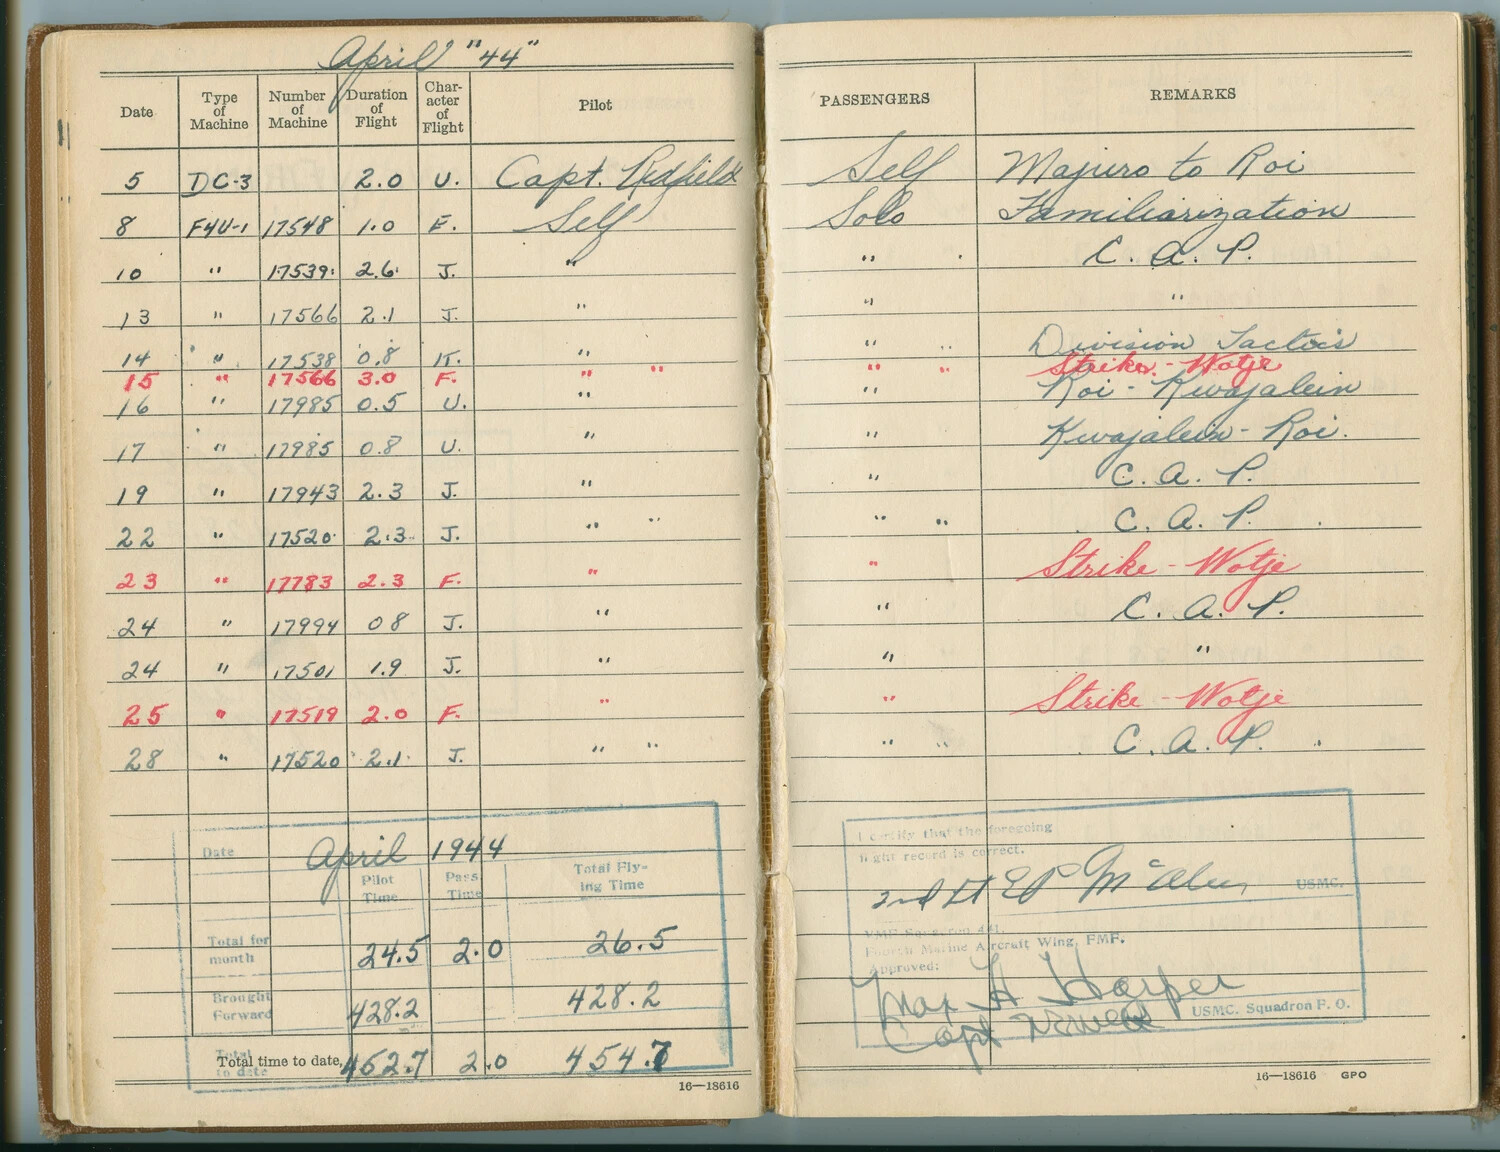 April "44"
Date Type of Machine Number of Machine Duration of Flight Char-acter of Flight Pilot PASSENGERS REMARKS
5 DC-3 2.0 U. Capt. Redfield Self Majuro to Roi
8 F4U-1 17548 1.0 E. Self Solo Familiarization
10 " 17539 2.6 J. " " C. A. P.
13 " 17566 2.1 J. " " "
14 " 17538 0.8 K. " " Division Tactics
15 " 17566 3.0 F. " " " " Strike - Wotje
16 " 17985 0.5 U. " " Roi - Kwajalein
17 " 17985 0.8 U. " " Kwajalein - Roi.
19 " 17943 2.3 J. " " C. A. P.
22 " 17520 2.3 J. " " " " C. A. P.
23 " 17783 2.3 F. " " Strike - Wotje
24 " 17994 08 J. " " C. A. P.
24 " 17501 1.9 J. " " "
25 " 17519 2.0 F. " " Strike - Wotje
28 " 17520 2.1 J. " " " " C. A. P.
Date April 1944
Pilot Time Pass Time Total Fly-ing Time
Total for month 24.5 2.0 26.5
Brought Forward 428.2 428.2
Total to date
Total time to date, 452.7 2.0 454.7
16—18616
I certify that the foregoing
flight record is correct.
2nd Lt E P USMC.
VMF-Squadron 441,
Fourth Marine Aircraft Wing, FMF.
Approved:
Max H Harper
Capt USMCR USMC. Squadron F. O.
16—18616 GPO